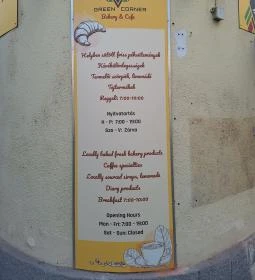 GREEN CORNER
Bakery & Cafe
Helyben sütött friss péksütemények
Kávékülönlegességek
Termelői szörpök, limonádé
Tejtermékek
Reggeli: 7:00-10:00
Nyitvatartás
H - P: 7:00 - 19:00
Szo - V: Zárva
Locally baked fresh bakery products
Coffee specialties
Locally sourced sirups, lemonade
Diary products
Breakfast 7:00-10:00
Opening Hours
Mon - Fri: 7:00 - 19:00
Sat - Sun: Closed